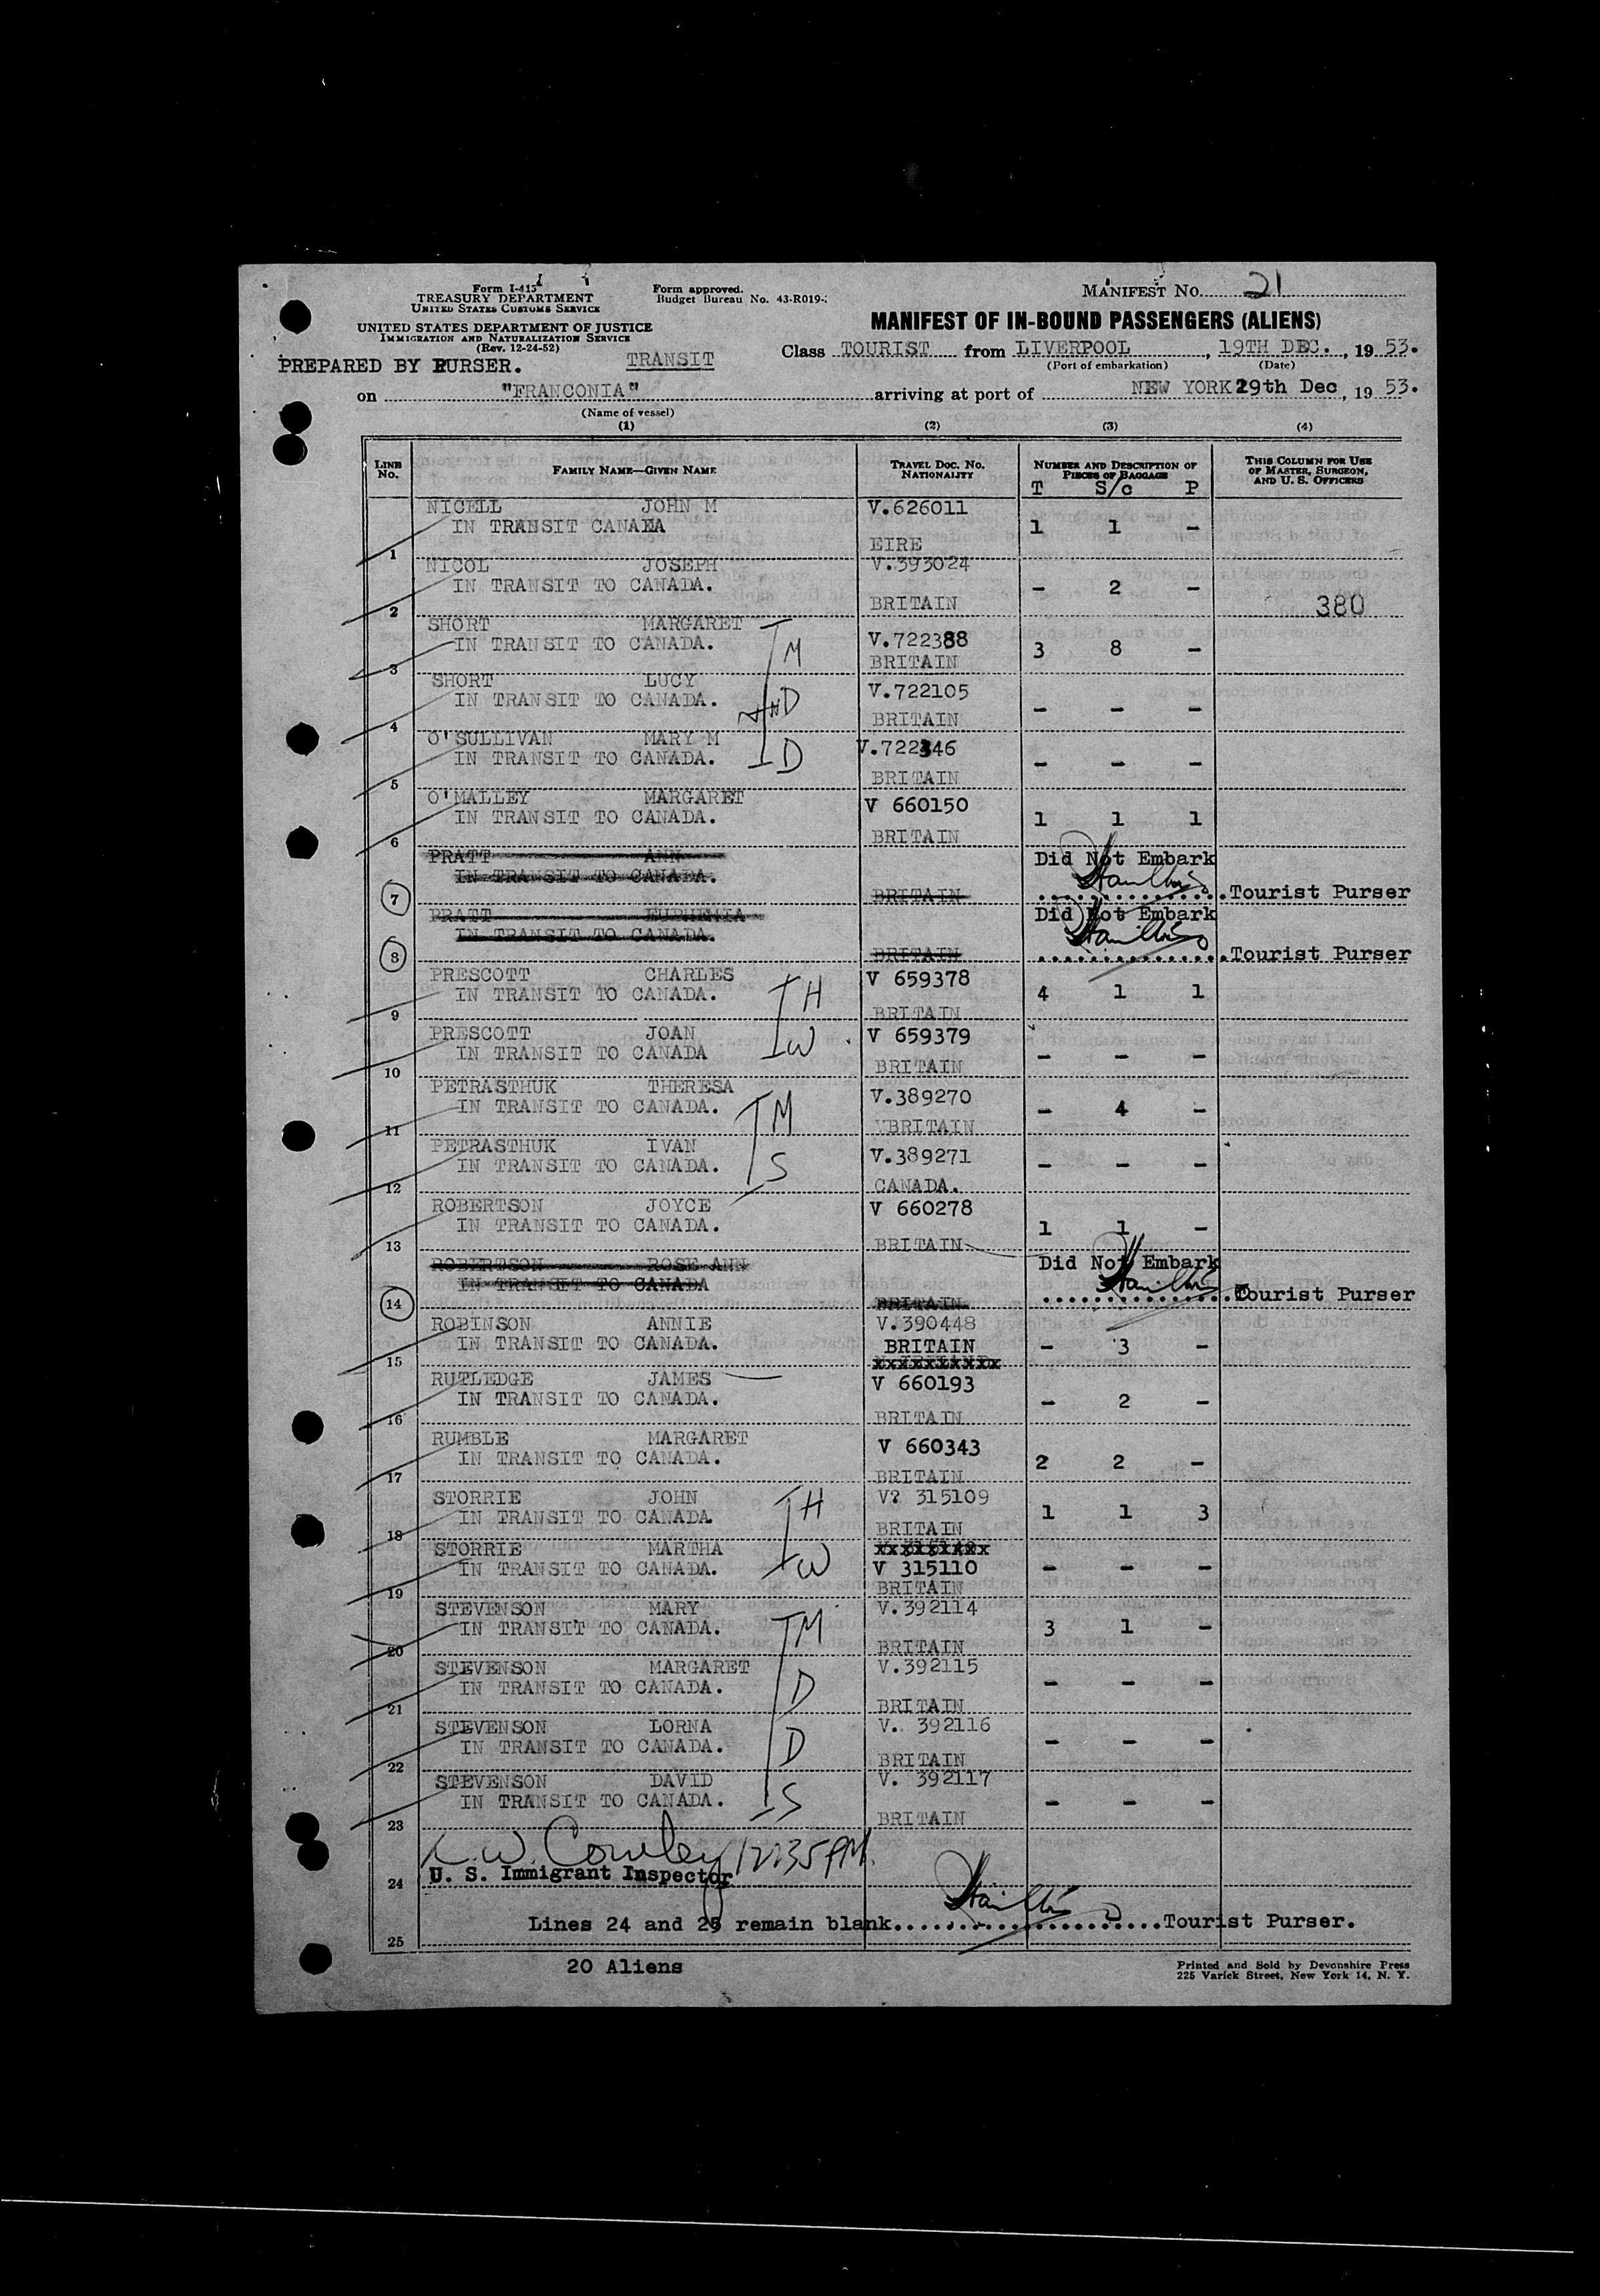 Form I-415
TREASURY DEPARTMENT
UNITED STATES CUSTOMS SERVICE
UNITED STATES DEPARTMENT OF JUSTICE
IMMIGRATION AND NATURALIZATION SERVICE
(Rev. 12-24-52)
Form approved.
Budget Bureau No. 43-R019-
MANIFEST NO. 21
MANIFEST OF IN-BOUND PASSENGERS (ALIENS)
PREPARED BY PURSER. TRANSIT Class TOURIST from LIVERPOOL, 19TH DEC., 19 53.
(Port of embarkation) (Date)
on "FRANCONIA" arriving at port of NEW YORK 29th Dec, 19 53.
(Name of vessel)
(1) (2) (3) (4)
LINE No. FAMILY NAME—GIVEN NAME TRAVEL DOC. NO. NATIONALITY NUMBER AND DESCRIPTION OF PIECES OF BAGGAGE THIS COLUMN FOR USE OF MASTER, SURGEON, AND U. S. OFFICERS
T S/c P
NICELL JOHN M V.626011
IN TRANSIT CANADA 1 1 -
1 EIRE
NICOL JOSEPH V.393024
IN TRANSIT TO CANADA. - 2 -
2 BRITAIN 380
SHORT MARGARET V.722388
IN TRANSIT TO CANADA. M 3 8 -
3 BRITAIN
SHORT LUCY V.722105
IN TRANSIT TO CANADA. D - - -
4 BRITAIN
O'SULLIVAN MARY M V.722346
IN TRANSIT TO CANADA. D - - -
5 BRITAIN
O'MALLEY MARGARET V 660150
IN TRANSIT TO CANADA. 1 1 1
6 BRITAIN
PRATT ANN Did Not Embark
IN TRANSIT TO CANADA.
7 BRITAIN Tourist Purser
PRATT EUPHEMIA Did Not Embark
IN TRANSIT TO CANADA.
8 BRITAIN Tourist Purser
PRESCOTT CHARLES V 659378
IN TRANSIT TO CANADA. H 4 1 1
9 BRITAIN
PRESCOTT JOAN V 659379
IN TRANSIT TO CANADA W - - -
10 BRITAIN
PETRASTHUK THERESA V.389270
IN TRANSIT TO CANADA. M - 4 -
11 VBRITAIN
PETRASTHUK IVAN V.389271
IN TRANSIT TO CANADA. S - - -
12 CANADA.
ROBERTSON JOYCE V 660278
IN TRANSIT TO CANADA. 1 1 -
13 BRITAIN
ROBERTSON ROSE ANN Did Not Embark
IN TRANSIT TO CANADA
14 BRITAIN Tourist Purser
ROBINSON ANNIE V.390448
IN TRANSIT TO CANADA. BRITAIN - 3 -
15
RUTLEDGE JAMES V 660193
IN TRANSIT TO CANADA. - 2 -
16 BRITAIN
RUMBLE MARGARET V 660343
IN TRANSIT TO CANADA. 2 2 -
17 BRITAIN
STORRIE JOHN V? 315109
IN TRANSIT TO CANADA. H 1 1 3
18 BRITAIN
STORRIE MARTHA
IN TRANSIT TO CANADA. W V 315110 - - -
19 BRITAIN
STEVENSON MARY V.392114
IN TRANSIT TO CANADA. M 3 1 -
20 BRITAIN
STEVENSON MARGARET V.392115
IN TRANSIT TO CANADA. D - - -
21 BRITAIN
STEVENSON LORNA V. 392116
IN TRANSIT TO CANADA. D - - -
22 BRITAIN
STEVENSON DAVID V. 392117
IN TRANSIT TO CANADA. S - - -
23 BRITAIN
12:35 PM.
U. S. Immigrant Inspector
24
Lines 24 and 25 remain blank. Tourist Purser.
25
20 Aliens
Printed and Sold by Devonshire Press
225 Varick Street, New York 14, N. Y.